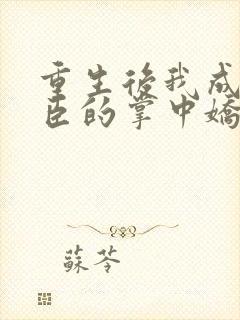 重生後我成
臣的掌中嬌
蘇苓